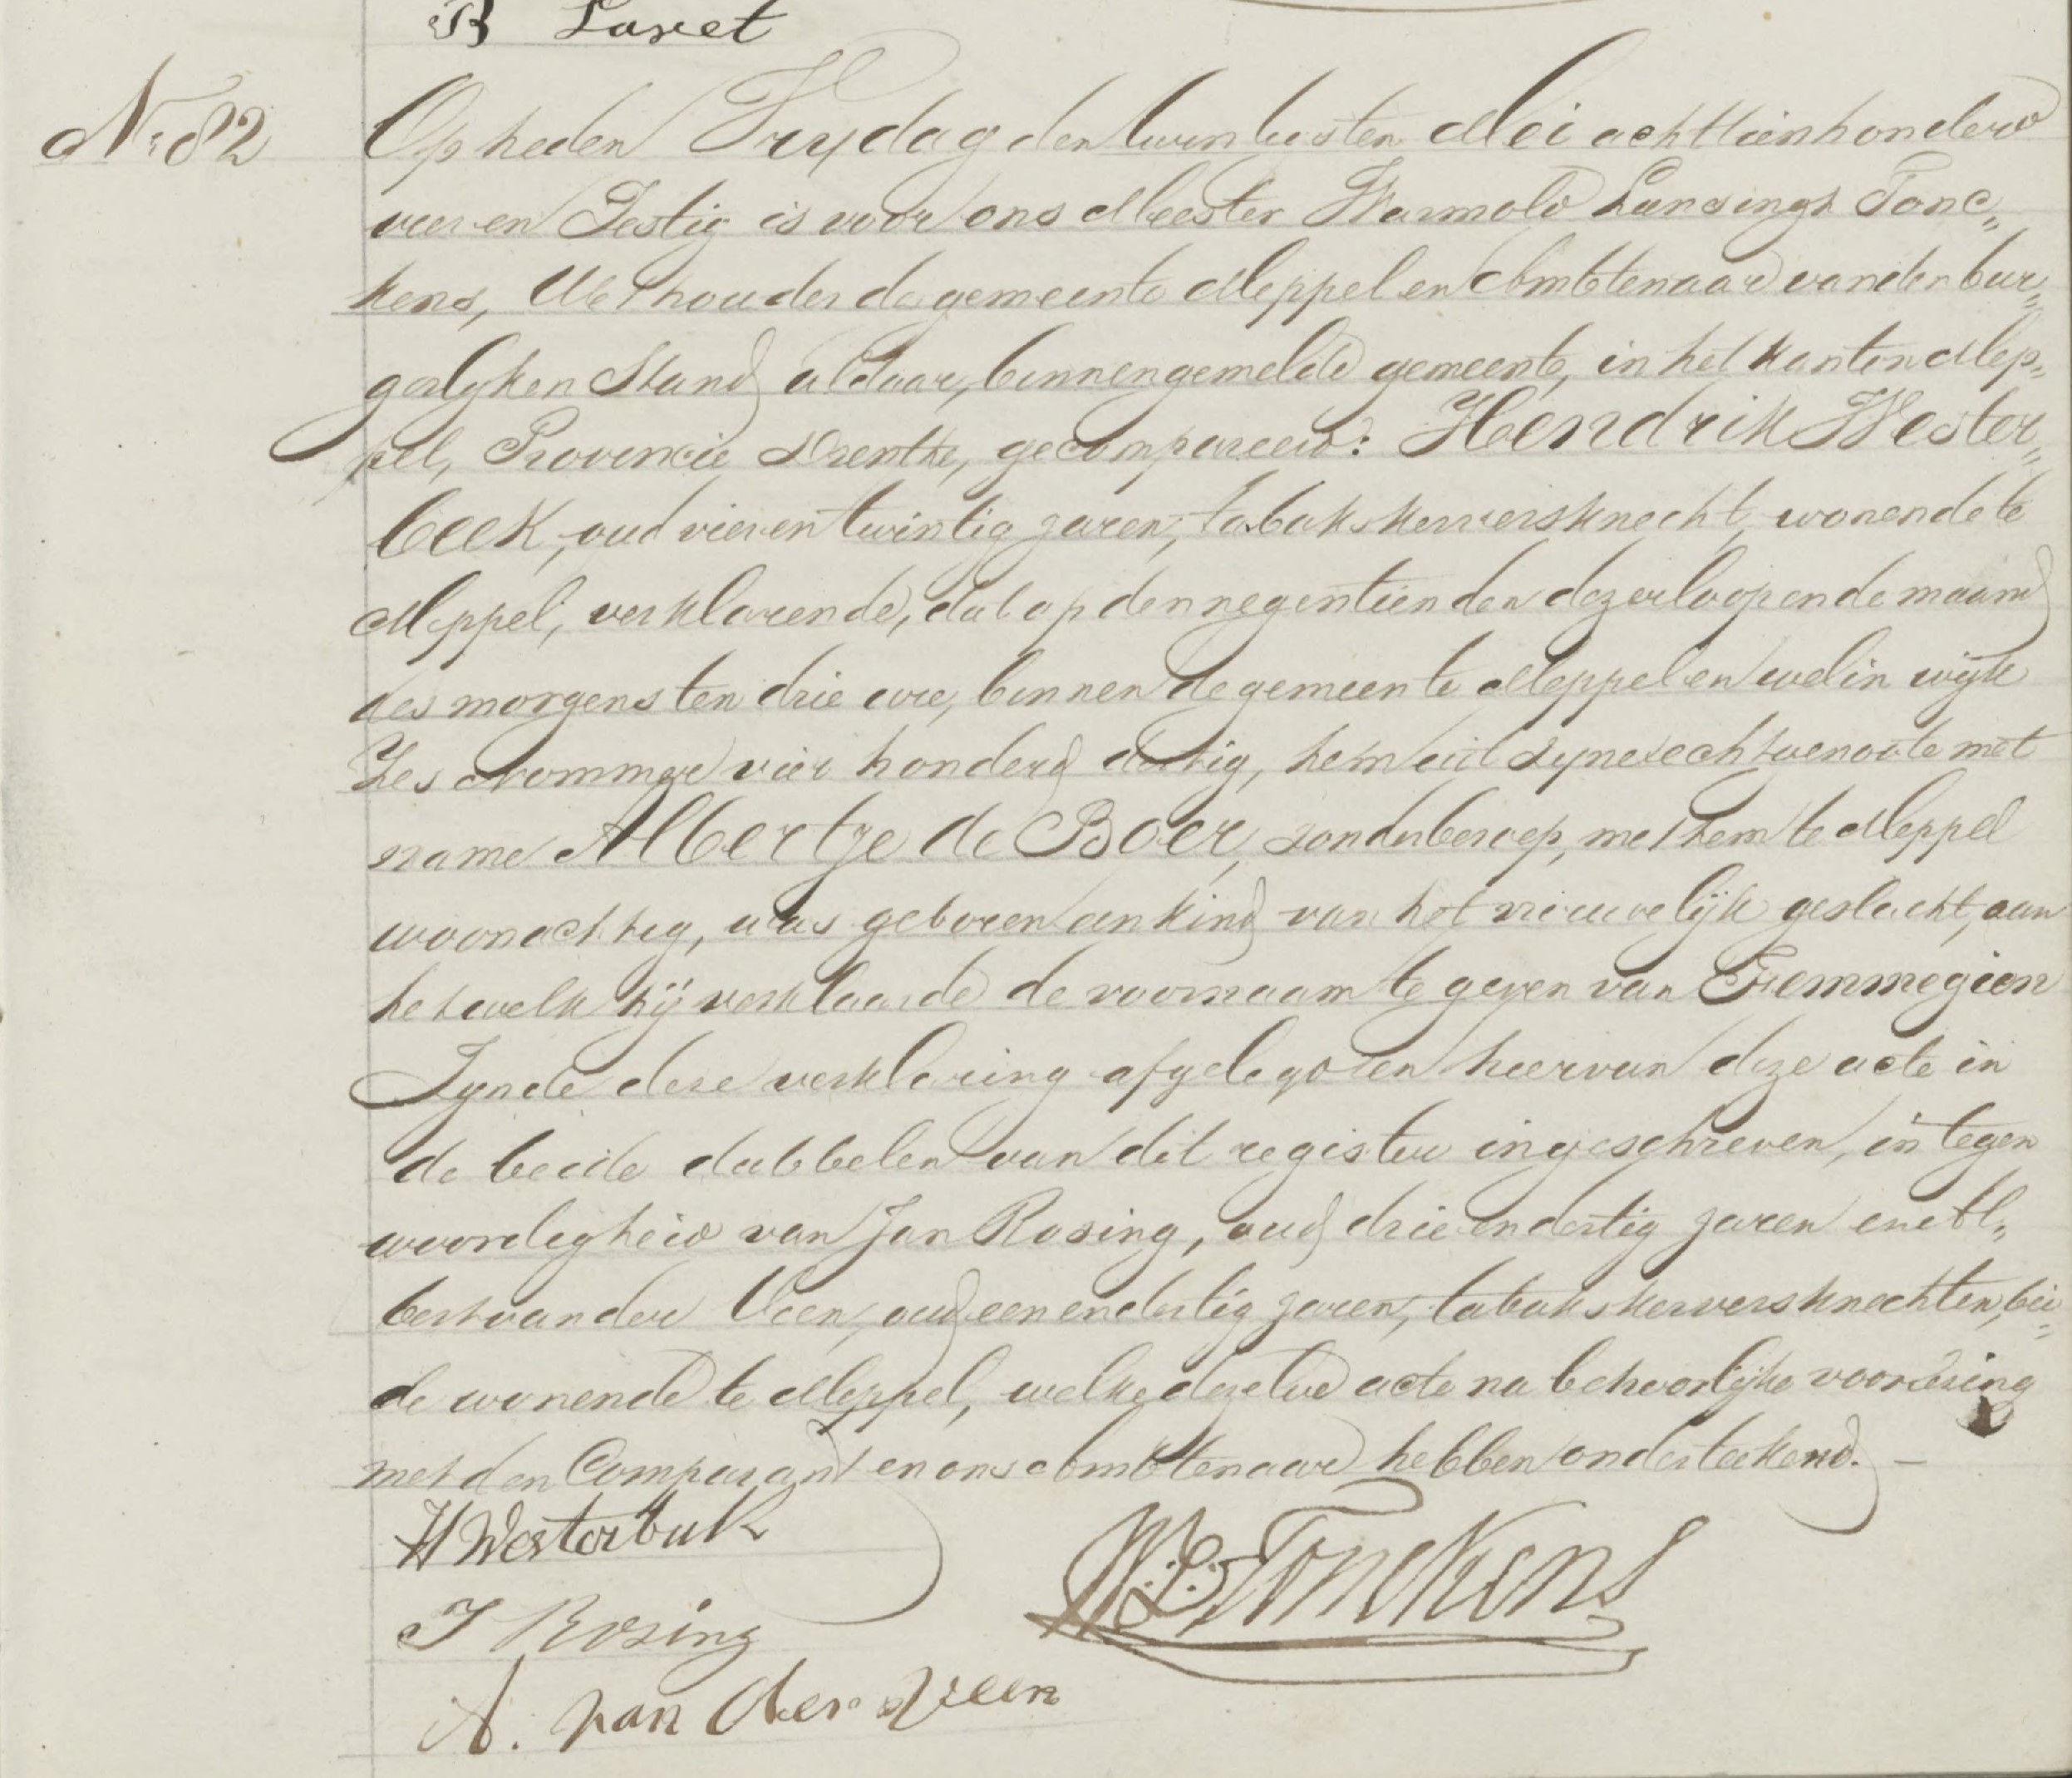 B Laret
No. 82
Op heden Frydag den twintigsten Mei achttienhonderd
vier en Sestig is voor ons Meester Warmold Lunsingh Tonc„
kens, Wethouder de gemeente Meppel en Ambtenaar van den bur„
gerlyken Stand aldaar, binnen gemelde gemeente, in het kanton Mep„
pel, Provincie Drenthe, gecompareerd: Hendrik Wester„
beek, oud vier en twintig jaren, tabakskerversknecht, wonende te
Meppel, verklarende, dat op den negentienden dezer loopende maand
des morgens ten drie ure, binnen de gemeente Meppel en wel in wijk
Zes Nommer vier honderd dertig, hem uit zyne echtgenoote met
name Albertje de Boer, zonder beroep, met hem te Meppel
woonachtig, was geboren een kind van het vrouwelijk geslacht, aan
hetwelk hij verklaarde de voornaam te geven van Femmegien
Zynde deze verklaring afgelegd en hiervan deze acte in
de beide dubbelen van dit register ingeschreven, in tegen
woordigheid van Jan Rosing, oud drie en dertig jaren en Al„
bert van der Veen, oud een en dertig jaren, tabakskerversknechten, bei„
de wonende te Meppel, welke dezelve acte na behoorlijke voorlezing
met den Comparant en ons Ambtenaar hebben onderteekend. –
H Westerbeek
W. L. Tonckens
J Rosing
A. van der Veen